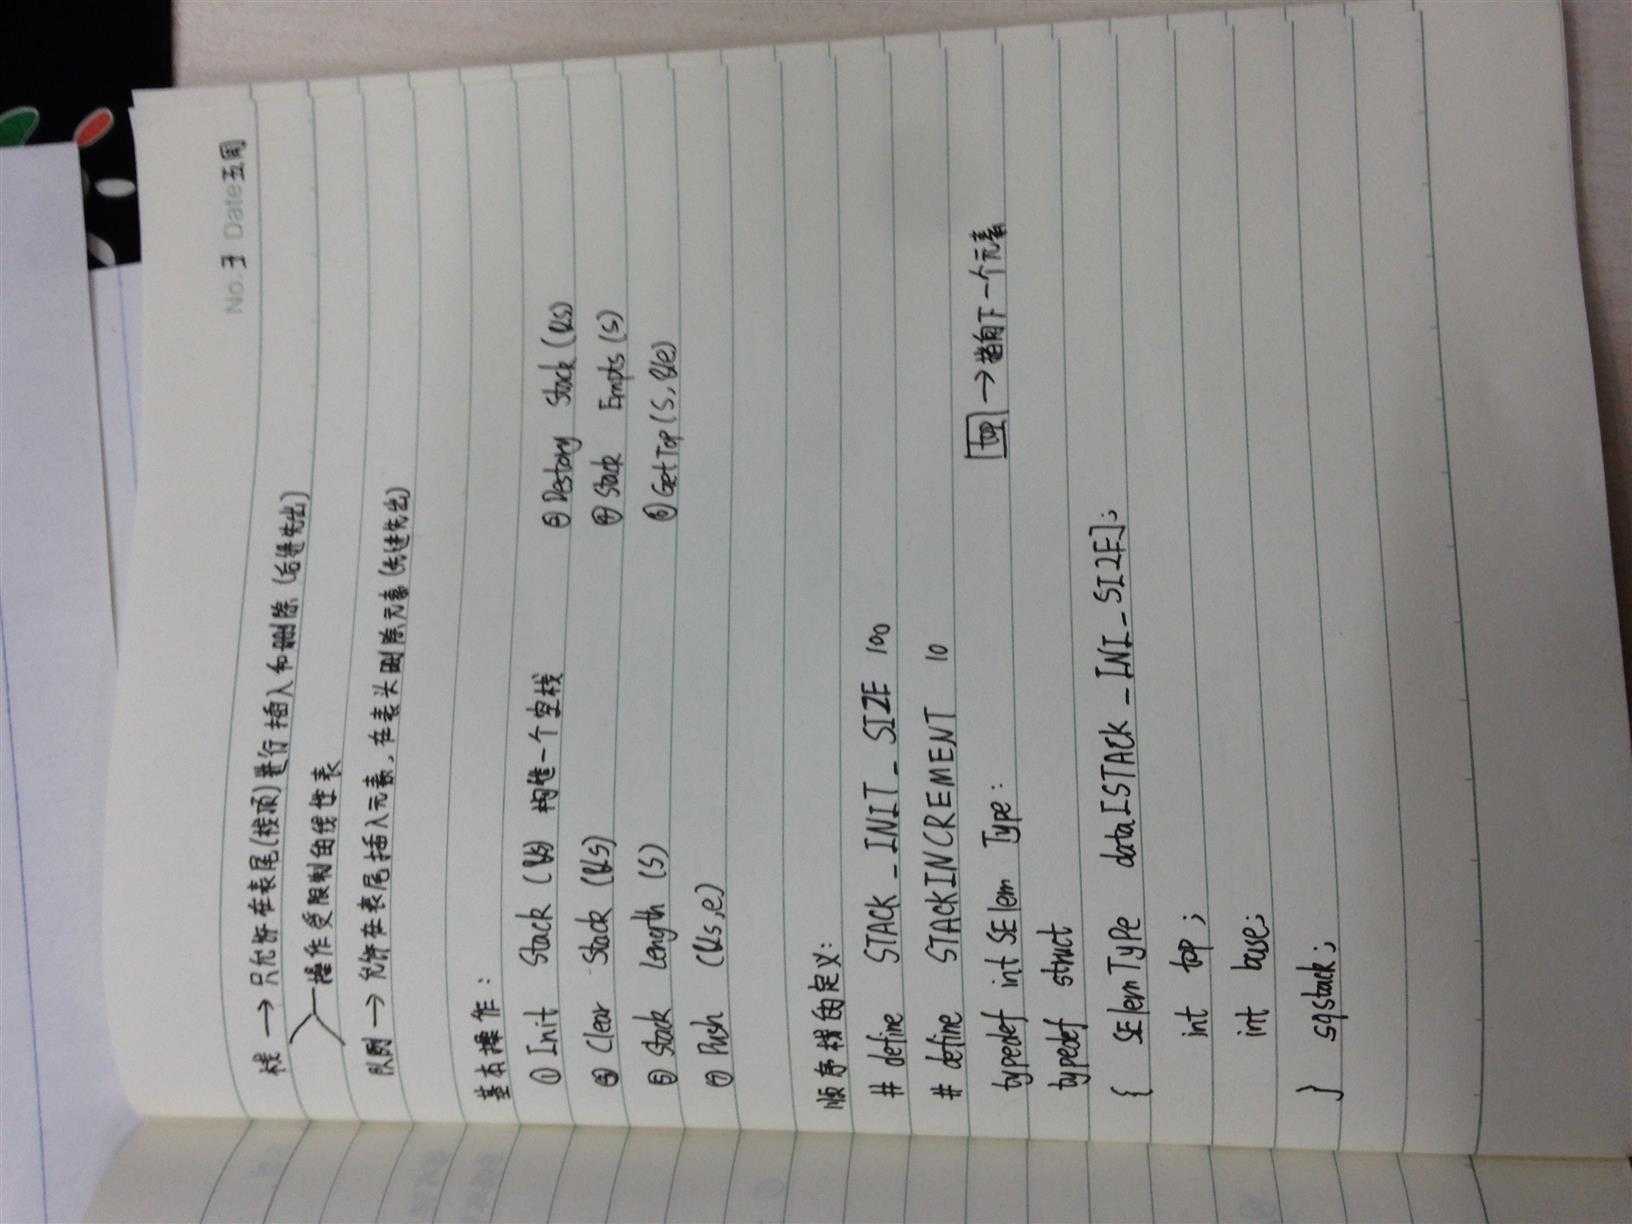 No. 3 Date 五周
栈 → 只允许在表尾(栈顶)进行插入和删除 (后进先出)
操作受限制的线性表
队列 → 允许在表尾插入元素, 在表头删除元素 (先进先出)
基本操作:
① Init Stack (&s) 构造一个空栈 ② Destory Stack (&s)
③ Clear Stack (&s) ④ Stack Empts (s)
⑤ Stack Length (s) ⑥ GetTop (s, &e)
⑦ Push (&s, e)
顺序栈的定义:
# define STACK_INIT_SIZE 100
# define STACKINCREMENT 10
typedef int SElem Type: top → 指向下一个元素
typedef struct
{ SElemType data[STACK_INI_SIZE];
int top;
int base;
} sqstack;